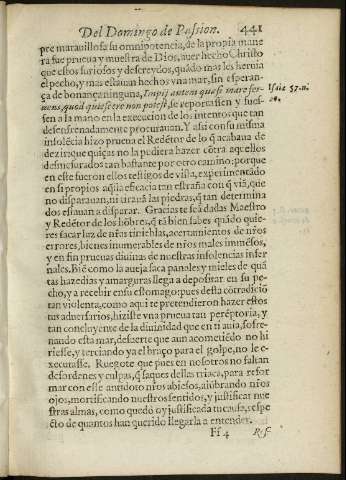 Del Domingo de Passion. 441
pre marauillosa su omnipotencia, de la propia mane
ra fue prueua y muestra de Dios, auer hecho Christo
que estos furiosos y descreydos, quãdo mas les heruia
el pecho, y mas estauan hechos vna mar, sin esperan-
ça de bonança ninguna, Impij autem quasi mare fer-
uens, quod quiescere non potest, se reportassen y fues-
sen a la mano en la execucion de los intentos que tan
desenfrenadamente procurauan. Y assi con su misma
insolẽcia hizo prueua el Redẽtor de lo q̃ acabaua de
dezir: que quiças no la pudiera hazer cõtra aquellos
desmesurados tan bastante por otro camino: porque
en este fueron ellos testigos de vista, experimentado
en si propios aq̃lla eficacia tan estraña con q̃ viã, que
no disparauan, ni tirauã las piedras, q̃ tan determina
dos estauan a disparar. Gracias te sea dadas Maestro
y Redẽtor de los hõbres, q̃ tã bien sabes quãdo quie-
res sacar luz de nr̃as tinieblas, acertamientos de nr̃os
errores, bienes inumerables de nr̃os males immẽsos,
y en fin prueuas diuinas de nuestras insolencias infer
nales. Biẽ como la aueja saca panales y mieles de quã
tas hazedias y amarguras llega a depositar en su pe-
cho, y a recebir en su estomago: pues desta cõtradiciõ
tan violenta, como aqui te pretendieron hazer estos
tus aduersarios, hiziste vna prueua tan perẽptoria, y
tan concluyente de la diuinidad que en ti auia, sofre-
nando esta mar, de suerte que aun acometiẽdo no hi
riesse, y terciando ya el braço para el golpe, no le e-
xecutasse. Ruegote que pues en nosotros no faltan
desordenes y culpas, q̃ saques delles triaca, para refor
mar con esse antidoto nr̃os abiesos, alũbrando nr̃os
ojos, mortificando nuestros sentidos, y justificar nue
stras almas, como quedó oy justificada tu causa, respe
cto de quantos han querido llegarla a entender.
Ff 4 Ref-
Isaie 57. n.
20.